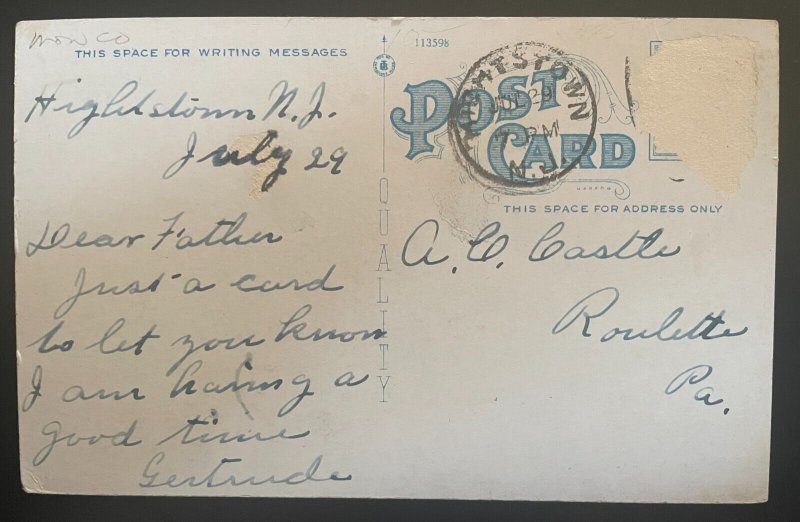 Mon Co
THIS SPACE FOR WRITING MESSAGES
Hightstown N.J.
July 29
Dear Father
Just a card
to let you know
I am having a
good time
Gertrude
QUALITY
113598
POST
CARD
HIGHTSTOWN
JUL 29
PM
N.J.
THIS SPACE FOR ADDRESS ONLY
A. C. Castle
Roulette
Pa.